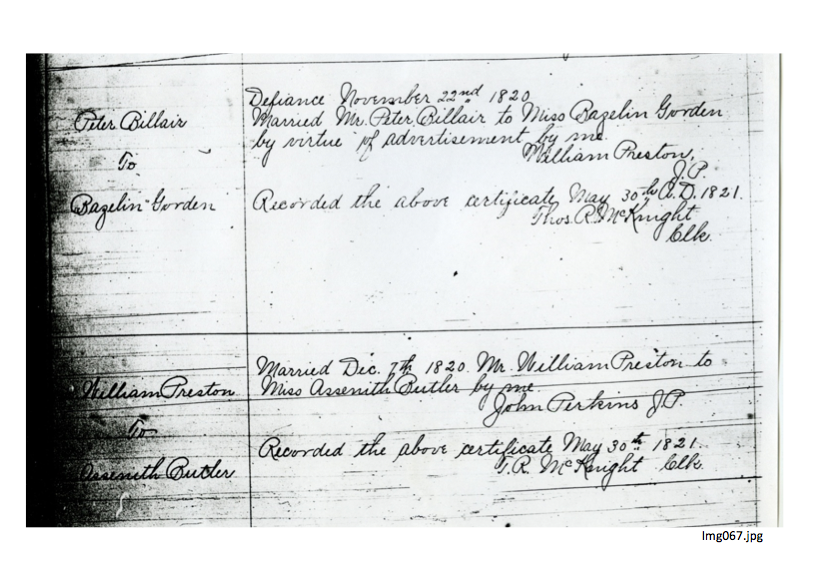 Peter Billair
To
Bazelin Gorden
Defiance November 22nd 1820
Married Mr. Peter Billair to Miss Bazelin Gorden
by virtue of advertisement by me
William Preston,
J.P.
Recorded the above certificate May 30th A.D. 1821.
Thos. R. McKnight
Clk.
William Preston
To
Assenith Butler
Married Dec. 7th 1820. Mr. William Preston to
Miss Assenith Butler by me
John Perkins J.P.
Recorded the above certificate May 30th 1821.
T.R. McKnight Clk.
Img067.jpg